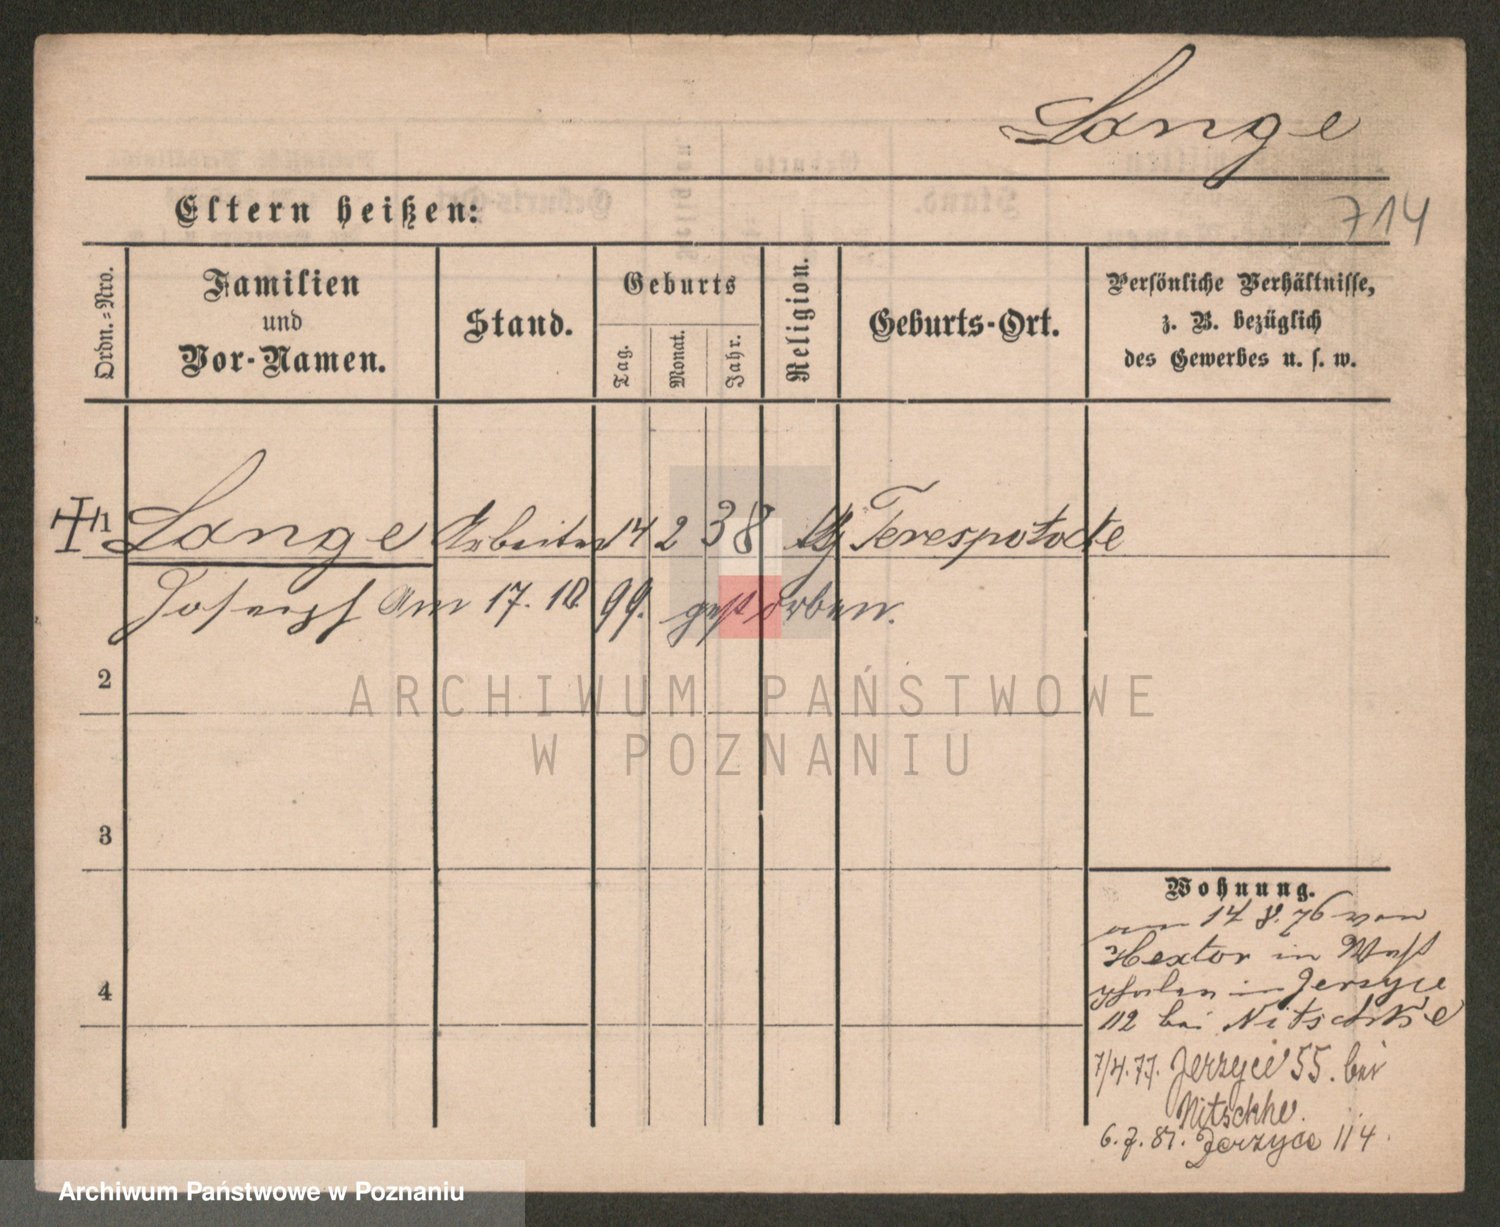 Lange
714
Eltern heißen:
Ordn.=Nro.
Familien
und
Vor-Namen.
Stand.
Geburts
Tag.
Monat.
Jahr.
Religion.
Geburts-Ort.
Persönliche Verhältnisse,
z. B. bezüglich
des Gewerbes u. s. w.
1 Lange Arbeiter 14 2 38 Terespotocke
Joseph Am 17. 10. 99. gestorben.
2
ARCHIWUM PAŃSTWOWE
W POZNANIU
3
4
Wohnung.
am 14 8. 76 von
Hextor in West
phalen in Jerzyce
112 bei Nitschke
7/4.77. Jerzyce 55. bei
Nitschke.
6.7.81. Jerzyce 114.
Archiwum Państwowe w Poznaniu